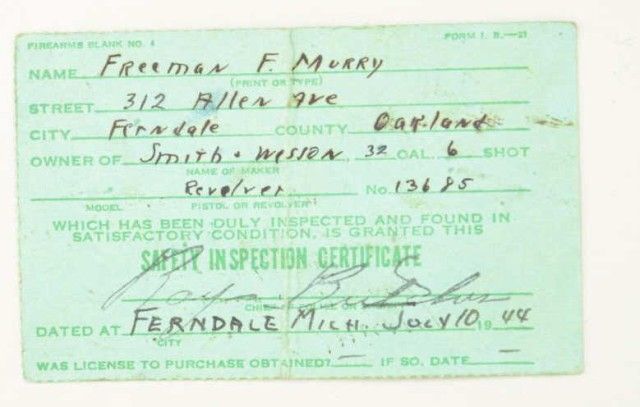 FIREARMS BLANK NO. 4 FORM I. B.—21
NAME Freeman F. Murry
(PRINT OR TYPE)
STREET 312 Allen Ave
CITY Ferndale COUNTY Oakland
OWNER OF Smith + Wesson 32 CAL. 6 SHOT
NAME OF MAKER
Revolver No. 13685
MODEL PISTOL OR REVOLVER
WHICH HAS BEEN DULY INSPECTED AND FOUND IN
SATISFACTORY CONDITION, IS GRANTED THIS
SAFETY INSPECTION CERTIFICATE
DATED AT FERNDALE MICH. JULY 10 1944
CITY
WAS LICENSE TO PURCHASE OBTAINED? — IF SO, DATE —